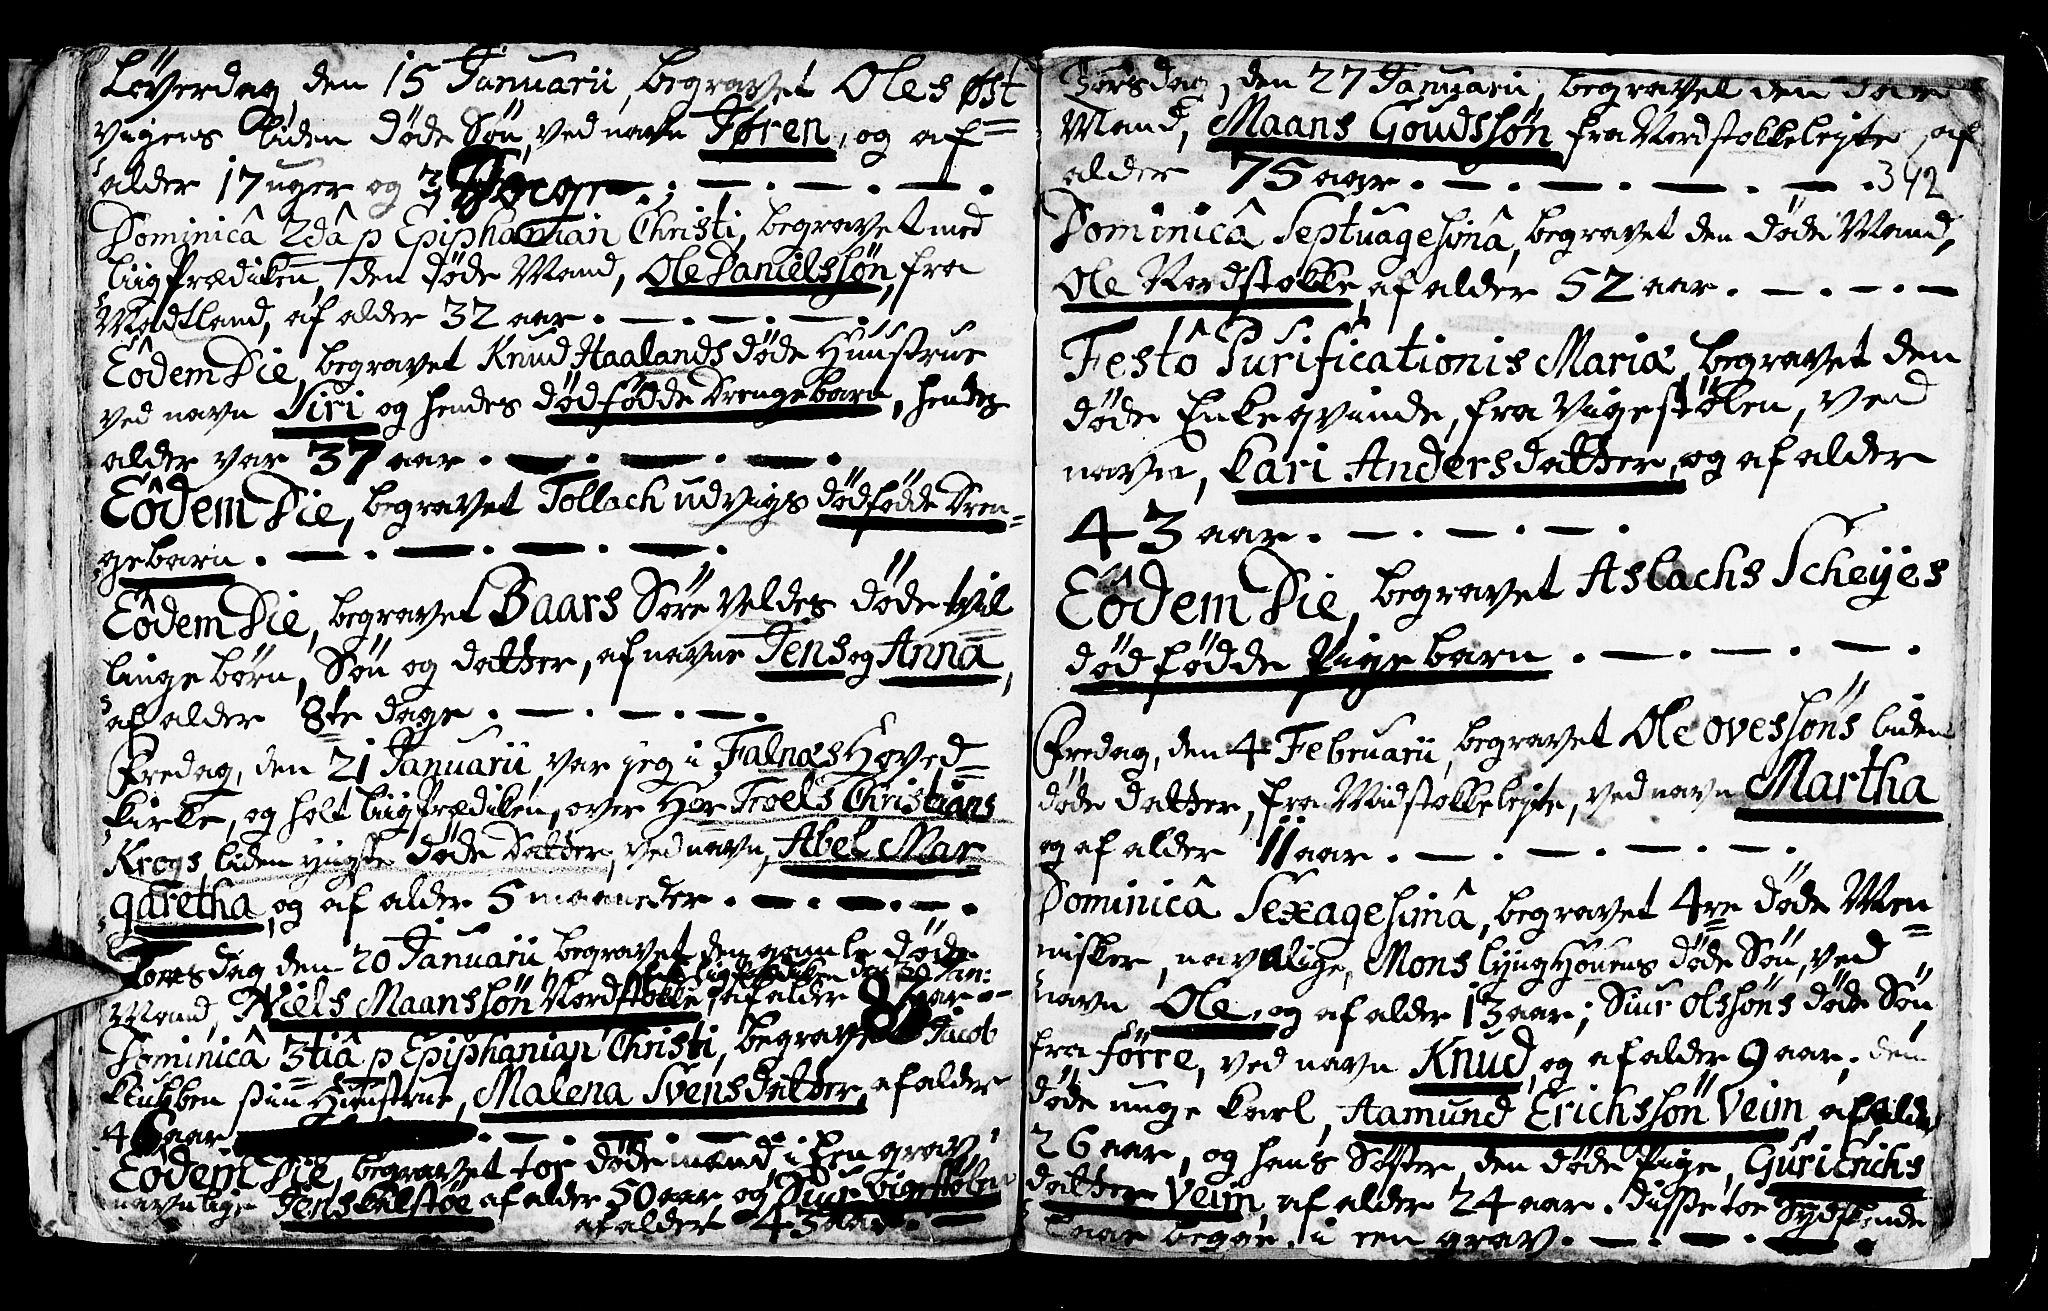 Löverdag, den 15 Januarii, begravet Oles Øst
vigens liden døde Søn, ved navn Jøren, og af=
alder 17 uger og 3 Dage
Dominicâ 2dâ p Epiphanian Christi, begravet med
liigPrædiken, den døde Mand, Ole Danielssøn, fra
Wadtland, af alder 32 aar.
Eôdem Die, begravet Knud Haalands døde Hüüstrüe
ved navn Siri og hendes dødfødde Drengebarn, hendes
alder var 37 aar.
Eôdem Die, begravet Tollach udvigs dødfødde Dren=
gebarn.
Eôdem Die, begravet Baars Søre Veldes døde tvil
linge børn, Søn og datter, af navne Jens og Anna,
af alder 8te dage.
Fredag, den 21 Januarii, var jeg i Falnæs Hoved=
kirke, og holt liigPrædiken, over Her Troels Christians
Krogs liden yngste døde Datter, ved navn, Abel Mar
garetha, og af alder 5 maaneder.
Torsdag den 20 Januarii begravet den gamle døde
Mand, Niels Maanssøn Nordstokke, af alder aar
Dominicâ 3tiâ p Epiphanian Christi, begravet Jacob
Klubben siin Hüüstrüe, Malena Svensdatter, af alder
46 aar
Eôdem Die, begravet toe døde mænd i Een grav,
navnlige Jens af alder 50 aar og Siur Vigestølen
af alder 43 aar.
Torsdag, den 27 Januarii, begravet den døde
Mand, Maans Goudssøn fra Nordstokkelejte, af
alder 75 aar. 342
Dominicâ Septuagesimâ, begravet den døde Mand,
Ole Nordstokke, af alder 52 aar.
Festô Purificationis Mariæ, begravet den
døde Enkeqvinde, fra Vigestølen, ved
navn, Kari Andersdatter, og af alder
43 aar.
Eôdem Die, begravet Aslachs Scheijes
dødfødde Pigebarn.
Fredag, den 4 Februarii, begravet Ole ovessøns liden
døde datter, fra Midstokkelejte, ved navn Martha
og af alder 11 aar.
Dominicâ Sexagesimâ, begravet 4re døde Men=
nisker, navnlige, Mons lyngHouens døde Søn, ved
navn Ole, og af alder 13 aar; Siur olssøns døde Søn,
fra førre, ved navn Knud, og af alder 9 aar; den
døde unge karl, Aamund Erichssøn Veim, af alder
26 aar, og hans Søster, den døde Pige, Guri Erichs
datter Veim, af alder 24 aar. disse toe Sydskende
begge i een grav.